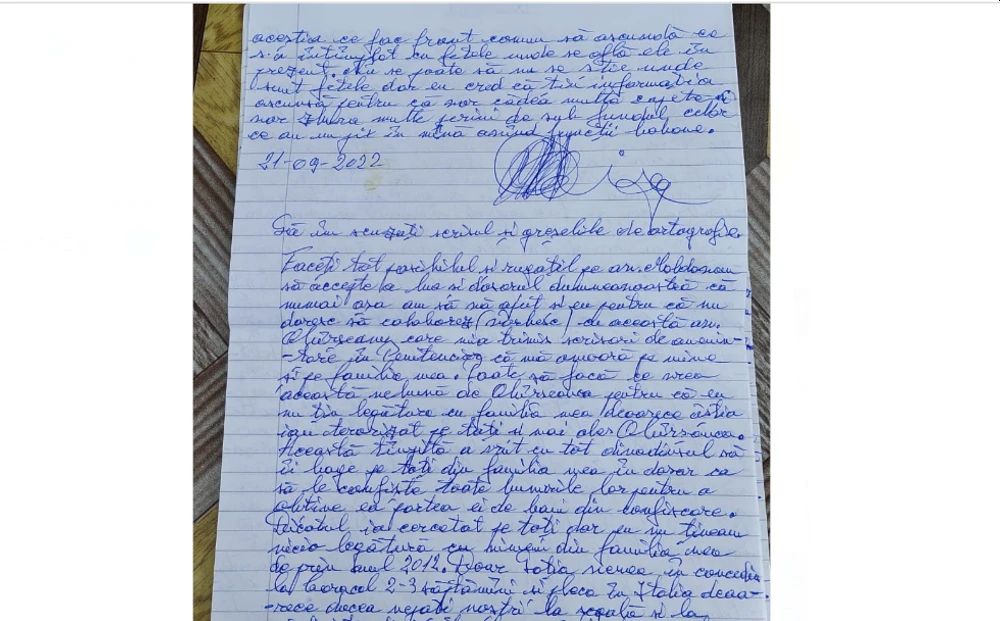 acestia ce fac front comun să ascundă ce
s-a întîmplat cu fetele unde se află ele în
prezent. Nu se poate să nu se știe unde
sunt fetele dar eu cred că țin informația
ascunsă pentru că sor cădea multe capete și
sor zbura multe perini de sub fundul celor
ce au un pix în mînă avînd funcții babane.
21-09-2022
Să îm scuzați scrisul si greșelile de ortografie.
Faceți tot posibilul si rugațil pe av. Moldovean
să accepte a lua si dosarul dumneavoastră că
numai așa am să vă ajut si eu pentru că nu
doresc să colaborez (vorbesc) cu această av.
care mia trimis scrisori de amenin-
-țare în Penitenciar că mă omoară pe mine
și pe familia mea. Poate să facă ce vrea
această nebună de pentru că eu
nu țin legătura cu familia mea deoarece ăștia
iau terorizat pe toți si mai ales
Această tîmpită a vrut cu tot dinadinsul să
îi bage pe toti din familia mea în dosar ca
să le confiște toate bunurile lor pentru a
obține ea partea ei de bani din confiscare.
Dicotul ia cercetat pe toți dar eu nu țineam
nicio legătură cu nimeni din familia mea
de prin anul 2012. Doar soția venea în concediu
la Caracal 2-3 săptămîni si pleca în Italia deoa-
-rece ducea nepoți noștri la școală si la